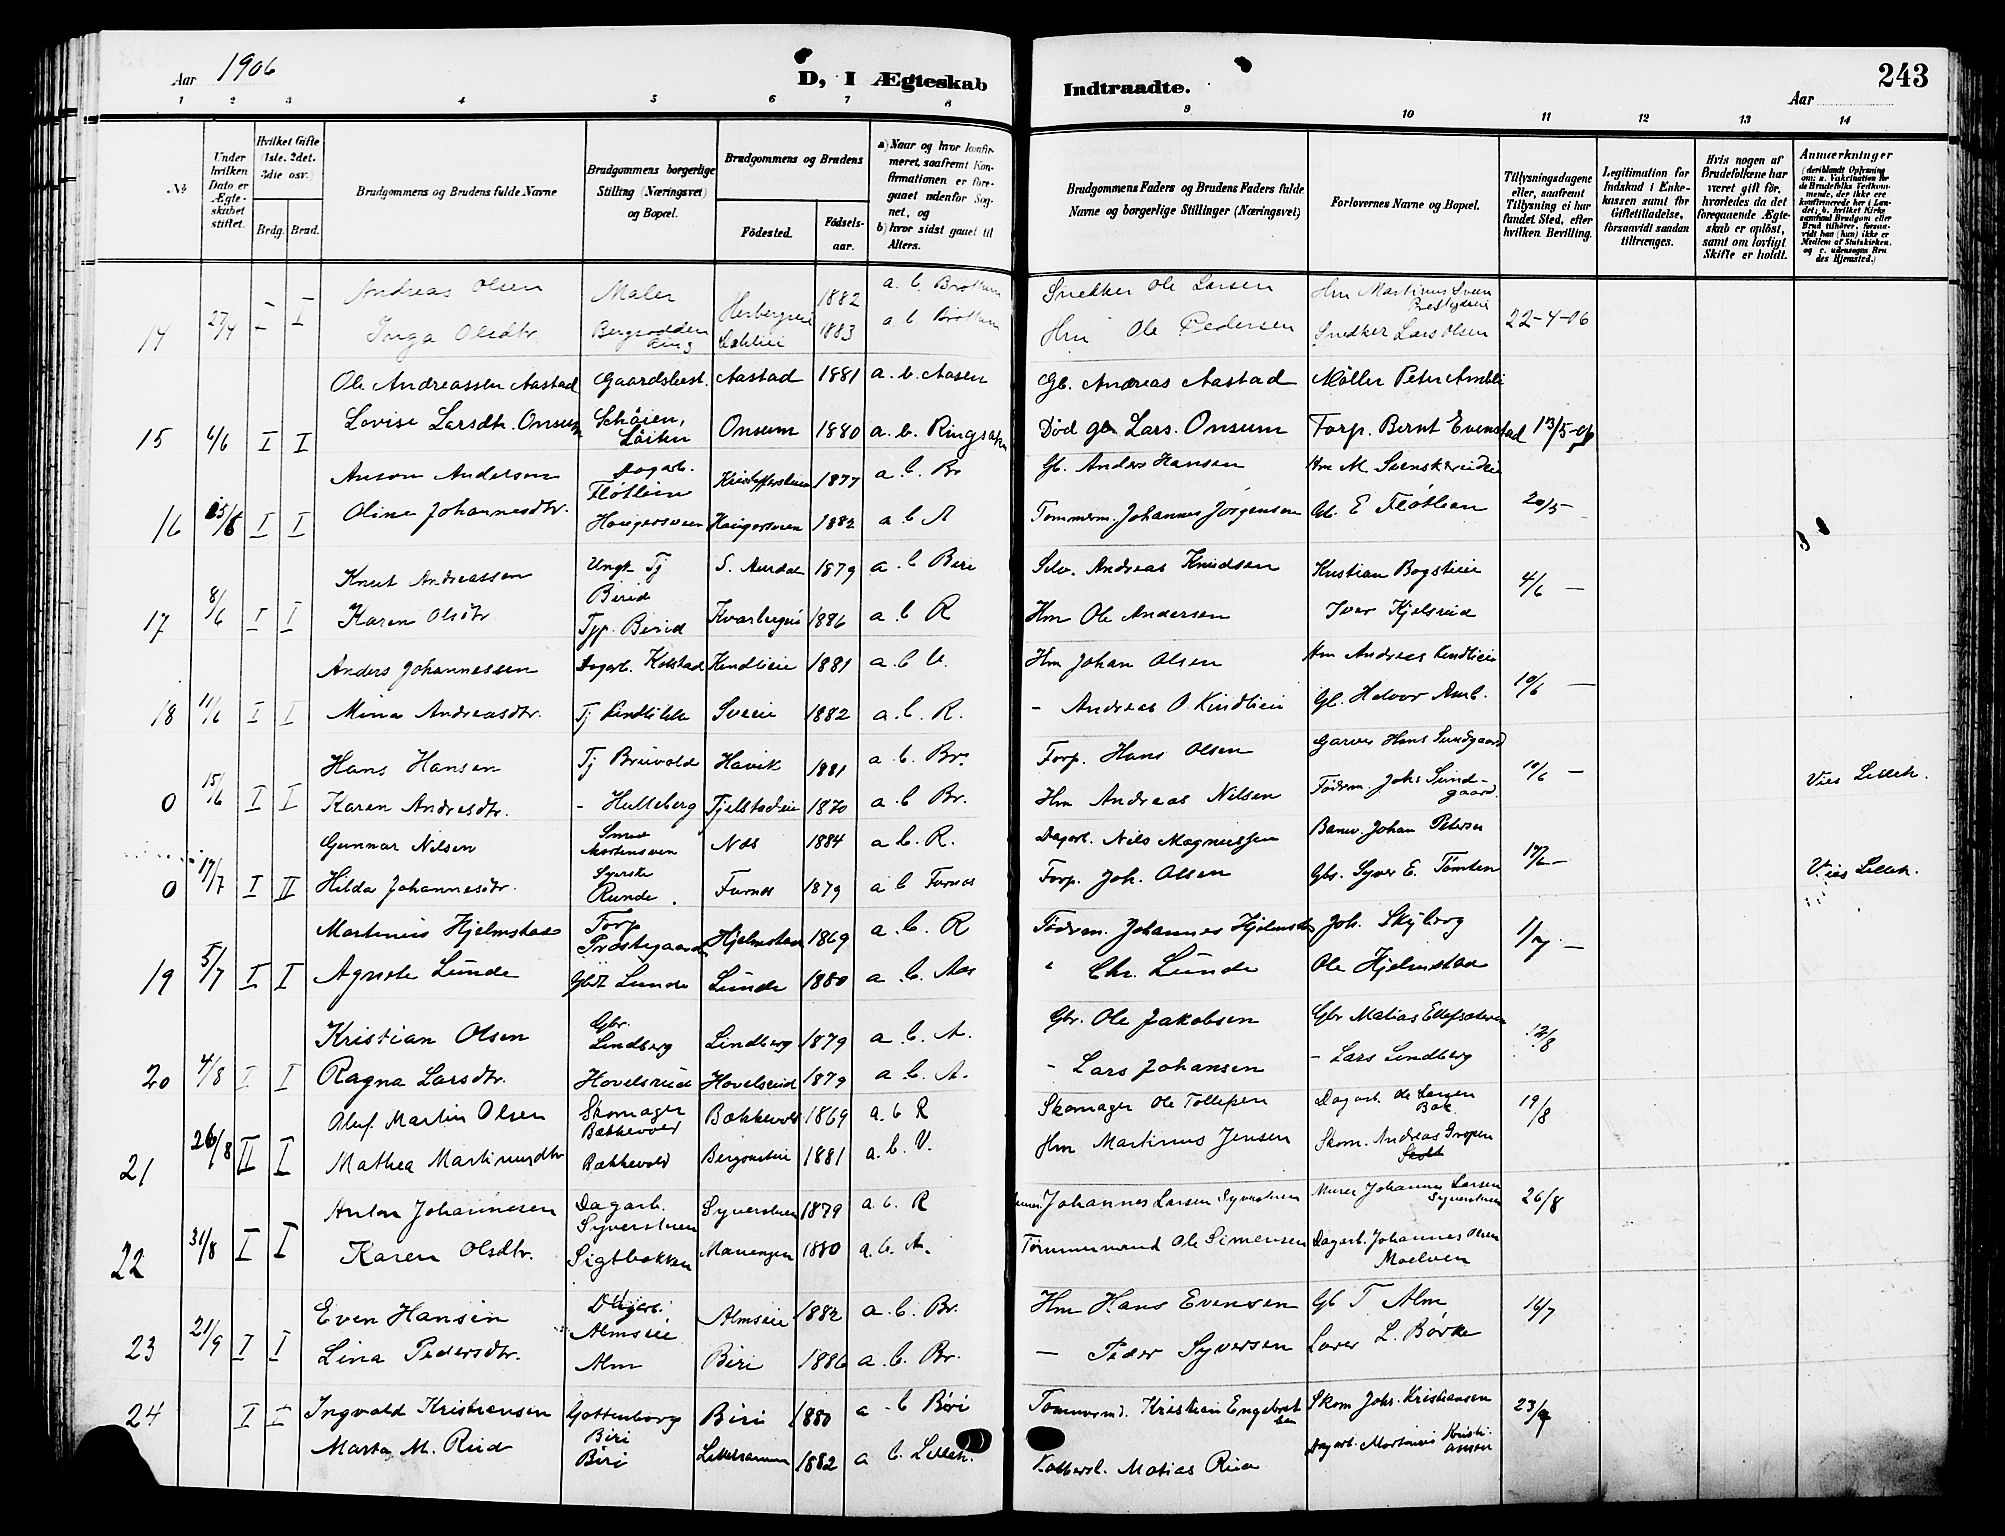 Aar 1906
D, I Ægteskab
Indtraadte.
243
Aar
1 2 3 4 5 6 7 8
9 10 11 12 13 14
№
Under hvilken Dato er Ægteskabet stiftet.
Hvilket Gifte (1ste, 2det, 3die osv.)
Brdg. Brud.
Brudgommens og Brudens fulde Navne
Brudgommens borgerlige Stilling (Næringsvei) og Bopæl.
Brudgommens og Brudens
Fødested. Fødselsaar.
a) Naar og hvor konfirmeret, saafremt Konfirmationen er foregaaet udenfor Sognet, og
b) hvor sidst gaaet til Alters.
Brudgommens Faders og Brudens Faders fulde Navne og borgerlige Stillinger (Næringsvei)
Forlovernes Navne og Bopæl.
Tillysningsdagene eller, saafremt Tillysning ei har fundet Sted, efter hvilken Bevilling.
Legitimation for Indskud i Enkekassen samt for Giftetilladelse, forsaavidt saadan tiltrænges.
Hvis nogen af Brudefolkene har været gift før, hvorledes da det foregaaende Ægteskab er opløst, samt om lovligt Skifte er holdt.
Anmærkninger
Andreas Olsen Maler 1882 a. b. Brøttum Snedker Ole Larsen
14 27/4 I I Inga Olsdtr. 1883 a b Brøttum Hm Ole Pedersen Snedker Lars Olsen 22-4-06
Ole Andreassen Aastad Gaardsbest. Aastad 1881 a. b. Aasen Gb. Andreas Aastad Møller Peter Ambli
15 6/6 I I Lovise Larsdtr. Onsum Schøien, Løiten Onsum 1880 a. b. Ringsaker Død gbr Lars Onsum Forp. Bernt Evenstad 13/5-06
Anton Anderson Dagarb. Fløtlien 1877 a. b. Br Gb. Anders Hansen
16 I I Oline Johannesdtr. Haugersveen Haugersveen 1882 a b A Tømmerm. Johannes Jørgensen Gb. E Fløtlien 20/5 -
Knut Andreassen Ungk. Tj S. Aurdal 1879 a. b Biri Selv. Andreas Knudsen Kristian Bogstieie
17 8/6 I I Karen Olsdtr Berid Kvarbergeie 1886 a. b R Hm Ole Andersen Iver Kjelsrud 4/6 -
Anders Johannessen Dagarb. Kolstad Kindlieie 1881 a. b V. Hm Johan Olsen Hm Andreas Kindlieie
18 11/6 I I Mina Andreasdtr. Sveeie 1882 a. b. R. - Andreas O. Kindlieie Gb. Halvor Amb. 10/6 -
Hans Hansen Tj Bruvold Havik 1881 a. b. Br. Forp. Hans Olsen Garver Hans Sundgaard
0 15/6 I I Karen Andresdtr. - Hulleberg Fjelstadeie 1870 a. b Br. Hm Andreas Nilsen Fødrm. Johs Sundgaard 10/6 - Vies Lilleh.
Gunnar Nilsen Smed Mortensveen Næs 1884 a b. R. Dagarb. Nils Magnussen Banev. Johan Petersen
0 17/7 I II Hilda Johannesdtr. Syerske Runde Furnes 1879 a b Furnes Forp. Joh. Olsen Gbr. Syver E. Tømten 17/6 - Vies Lilleh.
Martinius Hjelmstad Forp Præstegaard Hjelmstad 1869 a. b. R Fødrm. Johannes Hjelmstad Joh. Skyberg
19 5/7 I I Agnete Lunde Lunde Lunde 1880 a. b. Aas " Chr. Lunde Ole Hjelmstad 1/7 -
Kristian Olsen Gbr. Lindberg Lindberg 1879 a b. A. Gbr. Ole Jakobsen Gbr Matias Ellefsæteren
20 4/8 I I Ragna Larsdtr. Hovelsrud Hovelsrud 1879 a b. A. - Lars Johansen - Lars Lindberg 12/8
Oluf Martin Olsen Skomager Bækkevold Bækkevold 1869 a. b R Skomager Ole Tollefsen Dagarb. Ole Larsen Bak 19/8
21 26/8 II I Mathea Martinusdtr Bækkevold 1881 a. b. V. Hm Martinus Jensen Skom. Andreas Gropen
Anton Johannesen Dagarb. Syverstuen Syverstuen 1879 a. b. R Johannes Larsen Syverstuen Murer Johannes Larsen Syverstuen 26/8
22 31/8 I I Karen Olsdtr. Sigtbakken Mauengen 1880 a. b. A. Tømmermand Ole Simensen Dagarb. Johannes Olsen Moelven
Even Hansen Dagarb. Almseie Almseie 1882 a. b. Br. Hm Hans Evensen Gb T Alm 16/7
23 21/9 I I Lina Pedersdtr. Alm Biri 1886 a. b. Br. - Peder Syversen Lærer L. Børke
24 I I Ingvald Kristiansen Gottenborg Biri Biri 1880 a - b Biri Tømmermd. Kristian Engebretsen Skom Johs. Kristiansen 23/9
Marta M. Rud Biri Lillehammer 1882 a b. Lilleh. Matias Rud Dagarb. Martinius Kristiansen